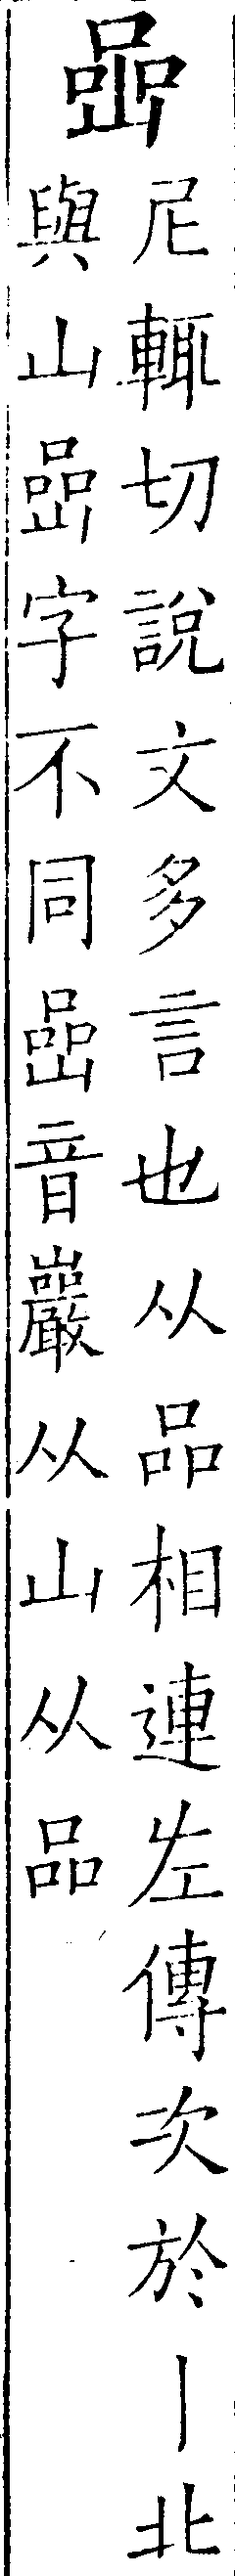 嵒
尼輒切說文多言也从品相連左傳次於丨北
與山嵒字不同嵒音巖从山从品